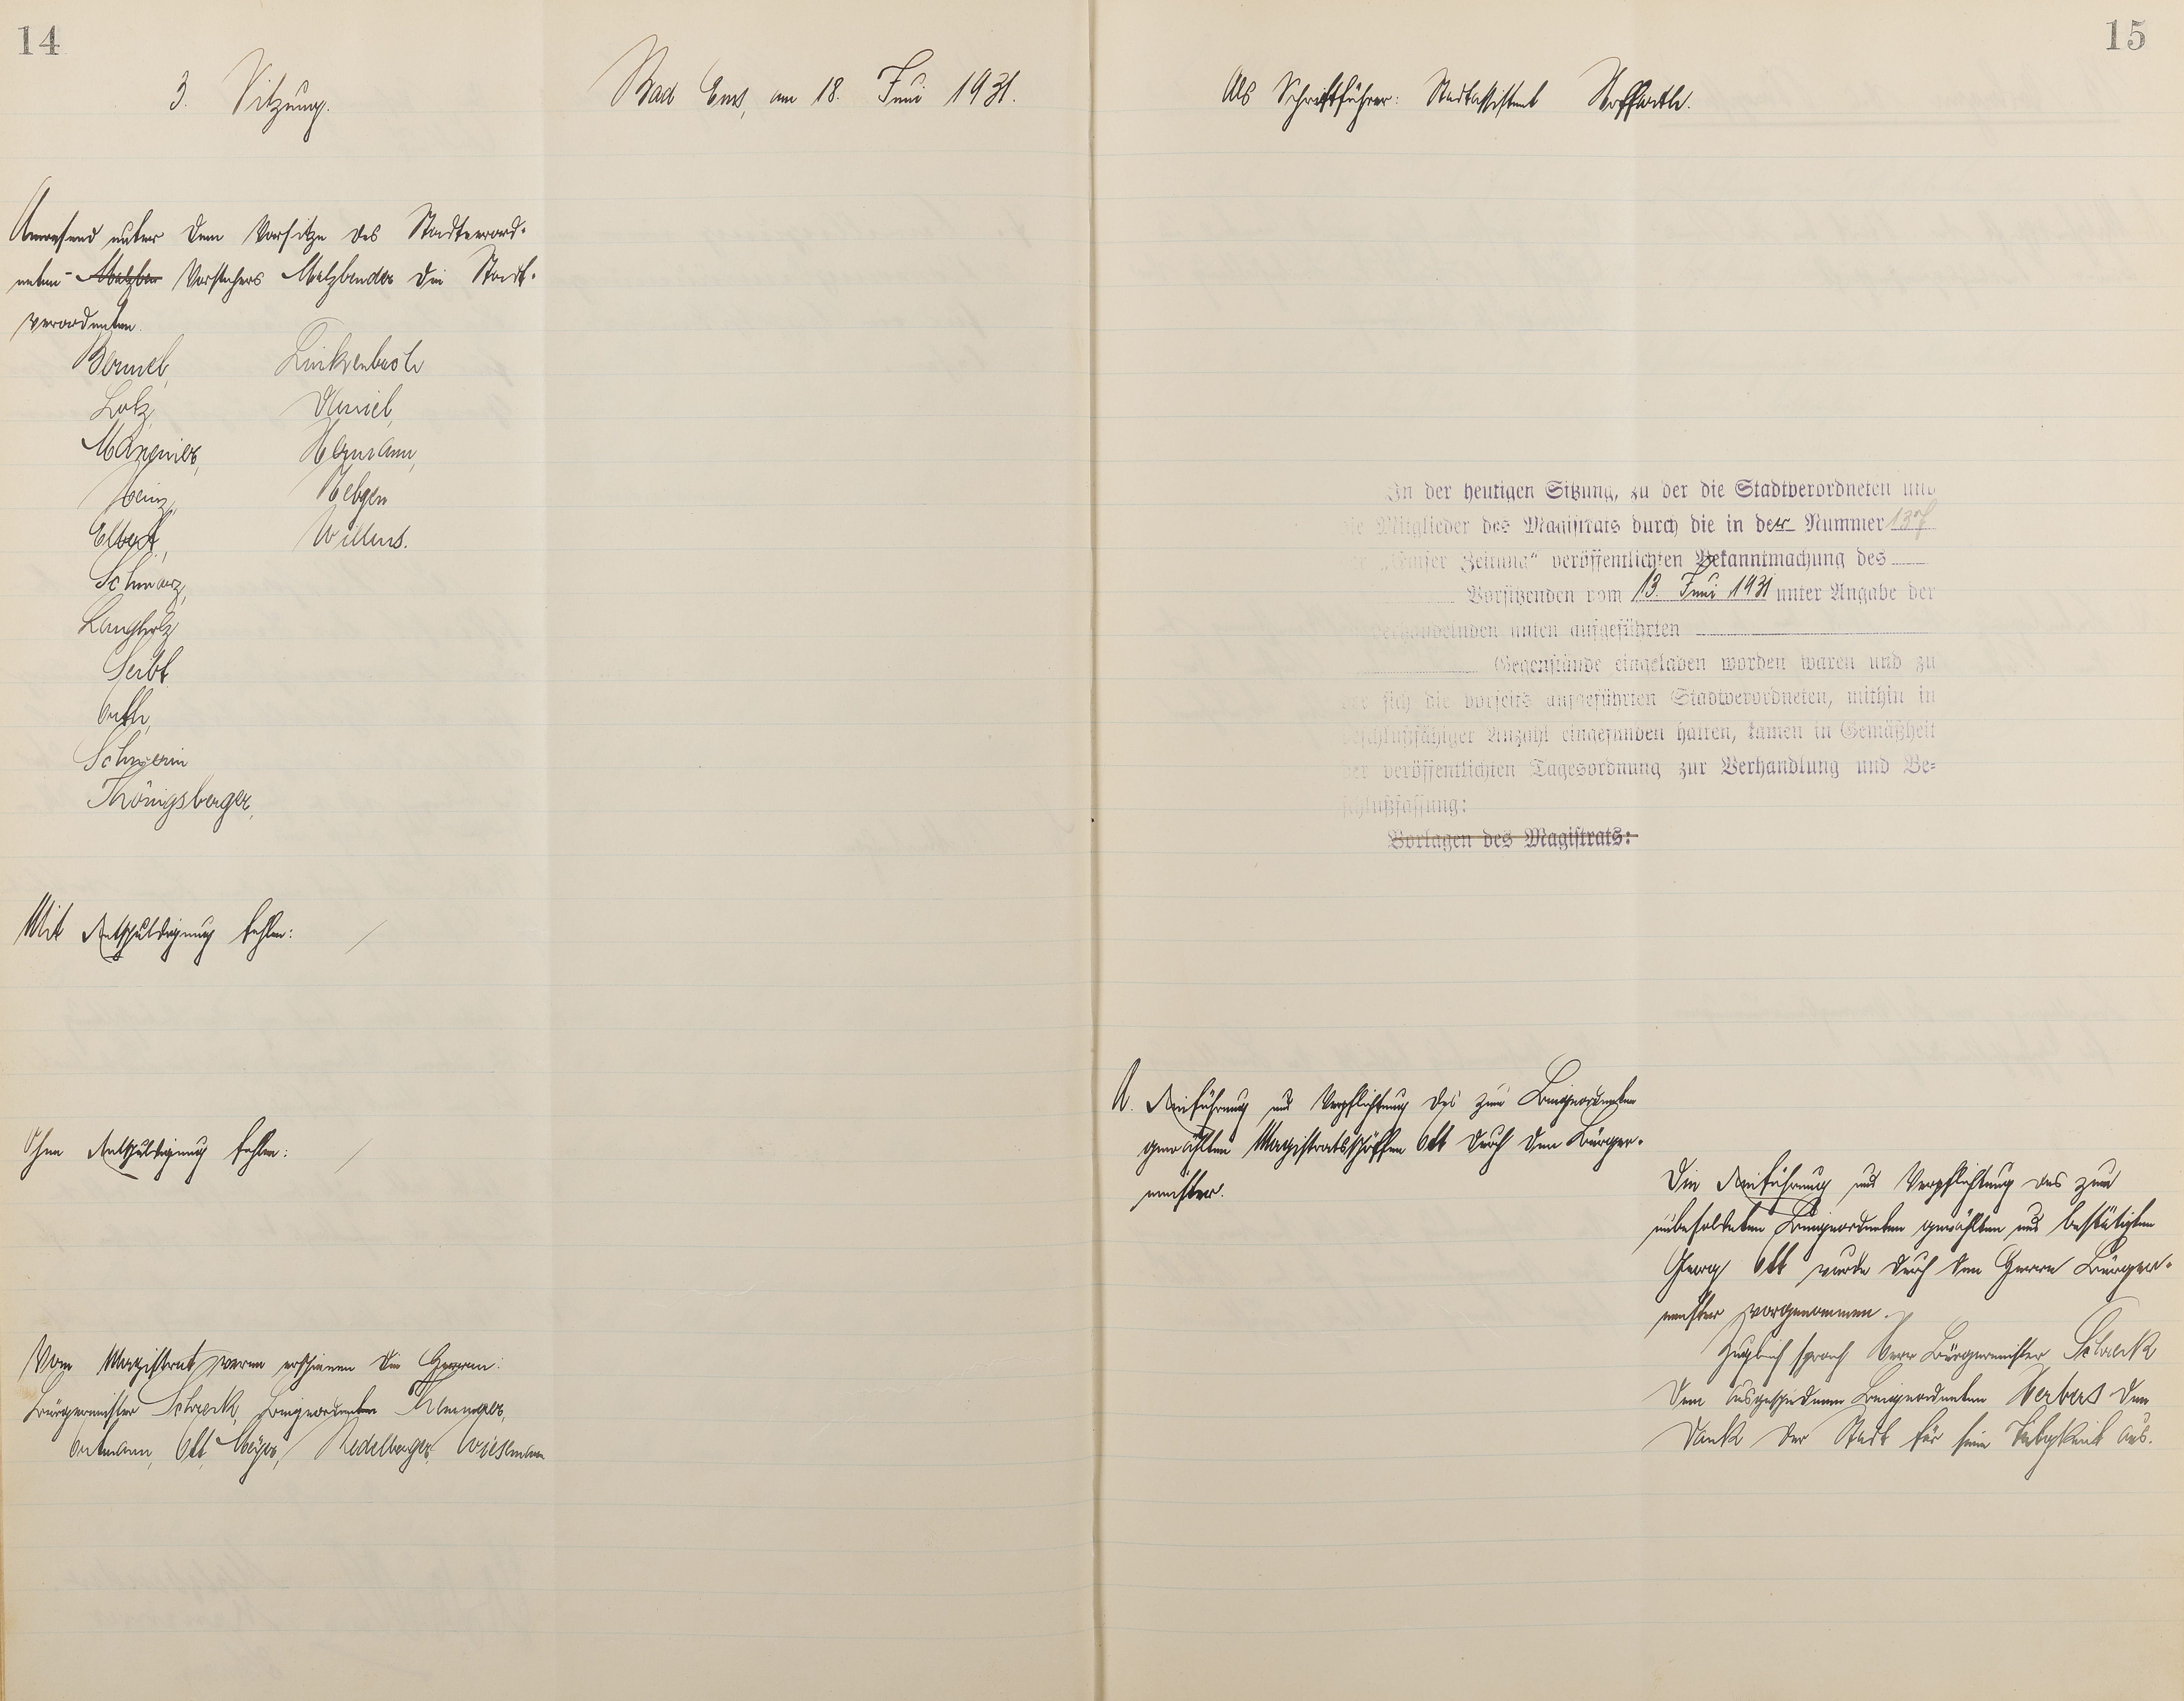 14
3. Sitzung.
Bad Ems, am 18. Juni 1931.
Anwesend unter dem Vorsitze des Stadtverord-
neten- Malzben Vorstehers Malzbender die Stadt-
verordneten.
Bermel, Linkenbach
Lotz, Daniel,
Hermann,
Heinz,
Elbert, Willems.
Schwarz,
Langholz
Seibt
Orth,
Schwerin
Königsberger,
Mit Entschuldigung fehlen: /
Ohne Entschuldigung fehlen: /
Vom Magistrat waren erschienen die Herren:
Bürgermeister Schreck, Beigeordneter
Ortmann, Ott, Meyer, Wiesemann
15
Als Schriftführer: Stadtassistent Hoffarth.
In der heutigen Sitzung, zu der die Stadtverordneten und
die Mitglieder des Magistrats durch die in der Nummer 137
der „Emser Zeitung“ veröffentlichten Bekanntmachung des
Vorsitzenden vom 13. Juni 1931 unter Angabe der
verhandelnden unten aufgeführten
Gegenstände eingeladen worden waren und zu
der sich die vorseits aufgeführten Stadtverordneten, mithin in
beschlußfähiger Anzahl eingefunden hatten, kamen in Gemäßheit
der veröffentlichten Tagesordnung zur Verhandlung und Be-
schlußfassung:
Vorlagen des Magistrats:
A. Einführung und Verpflichtung des zum Beigeordneten
gewählten Magistratsschöffen Ott durch den Bürger-
meister.
Die Einführung und Verpflichtung des zum
unbesoldeten Beigeordneten gewählten und bestätigten
Georg Ott wurde durch den Herrn Bürger-
meister vorgenommen.
Zugleich sprach Herr Bürgermeister Schreck
dem ausgeschiedenen Beigeordneten Herbers den
Dank der Stadt für seine Tätigkeit aus.